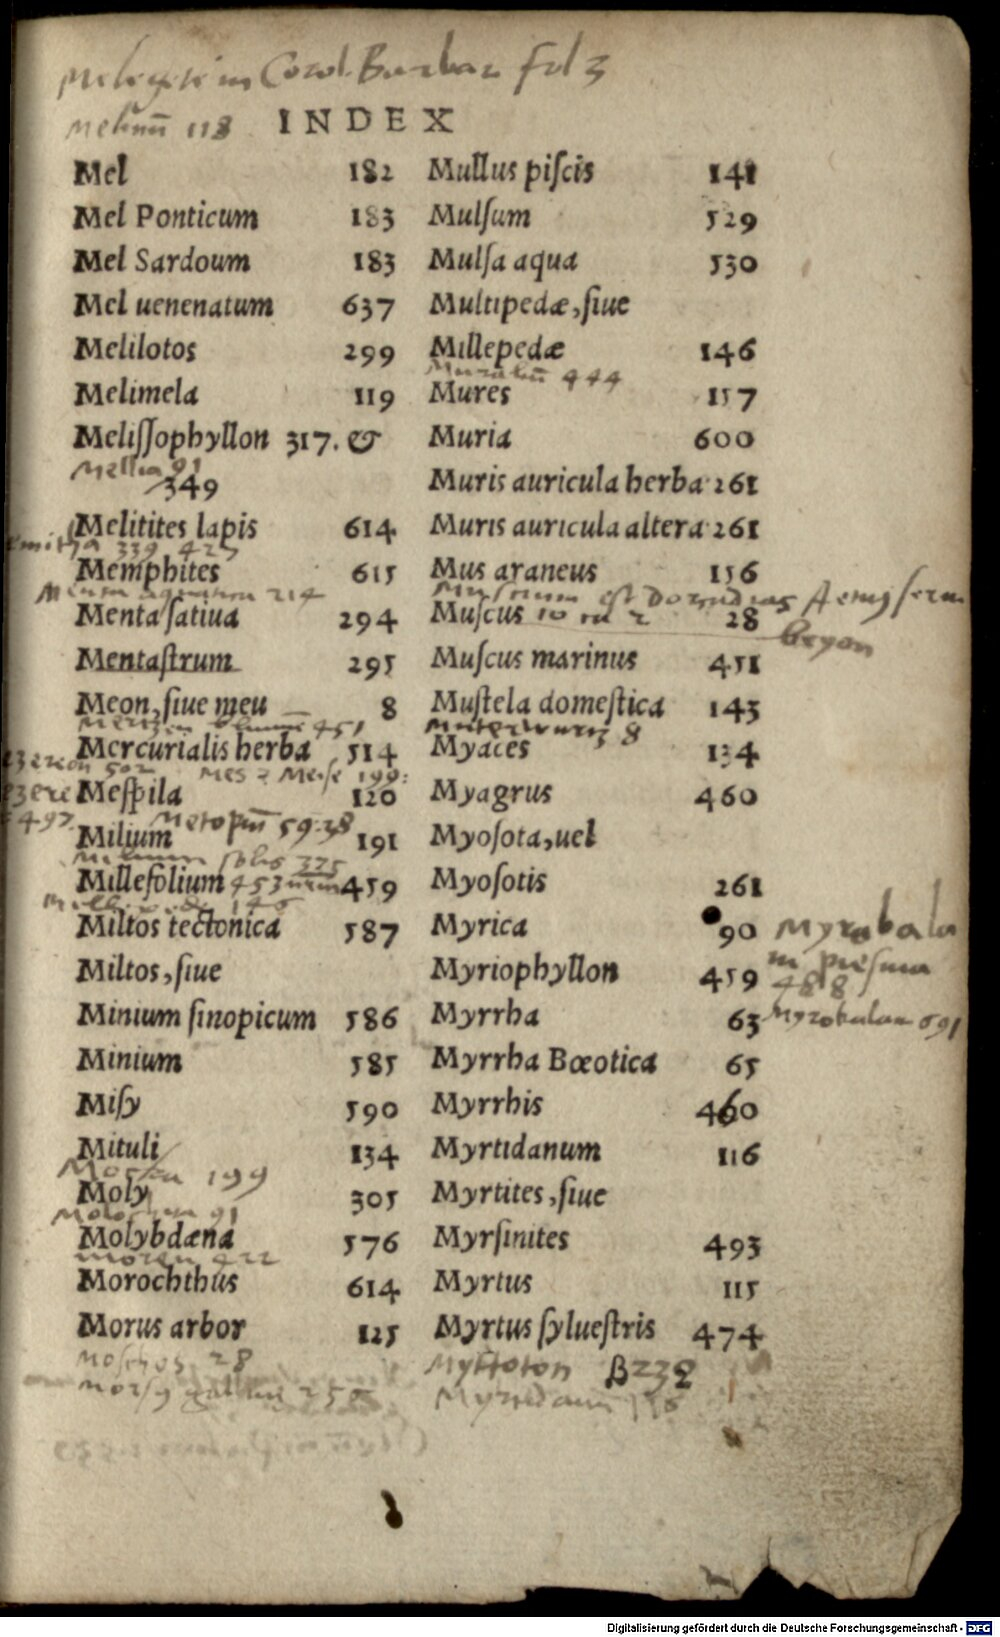 fol 3
118
INDEX
Mel 182
Mel Ponticum 183
Mel Sardoum 183
Mel uenenatum 637
Melilotos 299
Melimela 119
Meliſſophyllon 317. &
Mellia 91
349
Melitites lapis 614
339 425
Memphites 615
Menta aquatica 214
Menta ſatiua 294
Mentaſtrum 295
Meon, ſiue meu 8
451
Mercurialis herba 514
502
199
Meſpila 120
497
59
Milium 191
Milium ſolis 375
Millefolium 453 459
146
Miltos tectonica 587
Miltos, ſiue
Minium ſinopicum 586
Minium 585
Miſy 590
Mituli 134
199
Moly 305
91
Molybdæna 576
422
Morochthus 614
Morus arbor 125
Moſchos 28
Morſus gallinæ
Mullus piſcis 141
Mulſum 529
Mulſa aqua 530
Multipedæ, ſiue
Millepedæ 146
444
Mures 157
Muria 600
Muris auricula herba 261
Muris auricula altera 261
Mus araneus 156
est
Muſcus 28
Muſcus marinus 451
Muſtela domeſtica 143
Muterwurtz 8
Myaces 134
Myagrus 460
Myoſota, uel
Myoſotis 261
Myrica 90
Myriophyllon 459
488
Myrrha 63
Myrobalan 691
Myrrha Bœotica 65
Myrrhis 460
Myrtidanum 116
Myrtites, ſiue
Myrſinites 493
Myrtus 115
Myrtus ſylueſtris 474
Myrtidanum 116
Digitalisierung gefördert durch die Deutsche Forschungsgemeinschaft - DFG